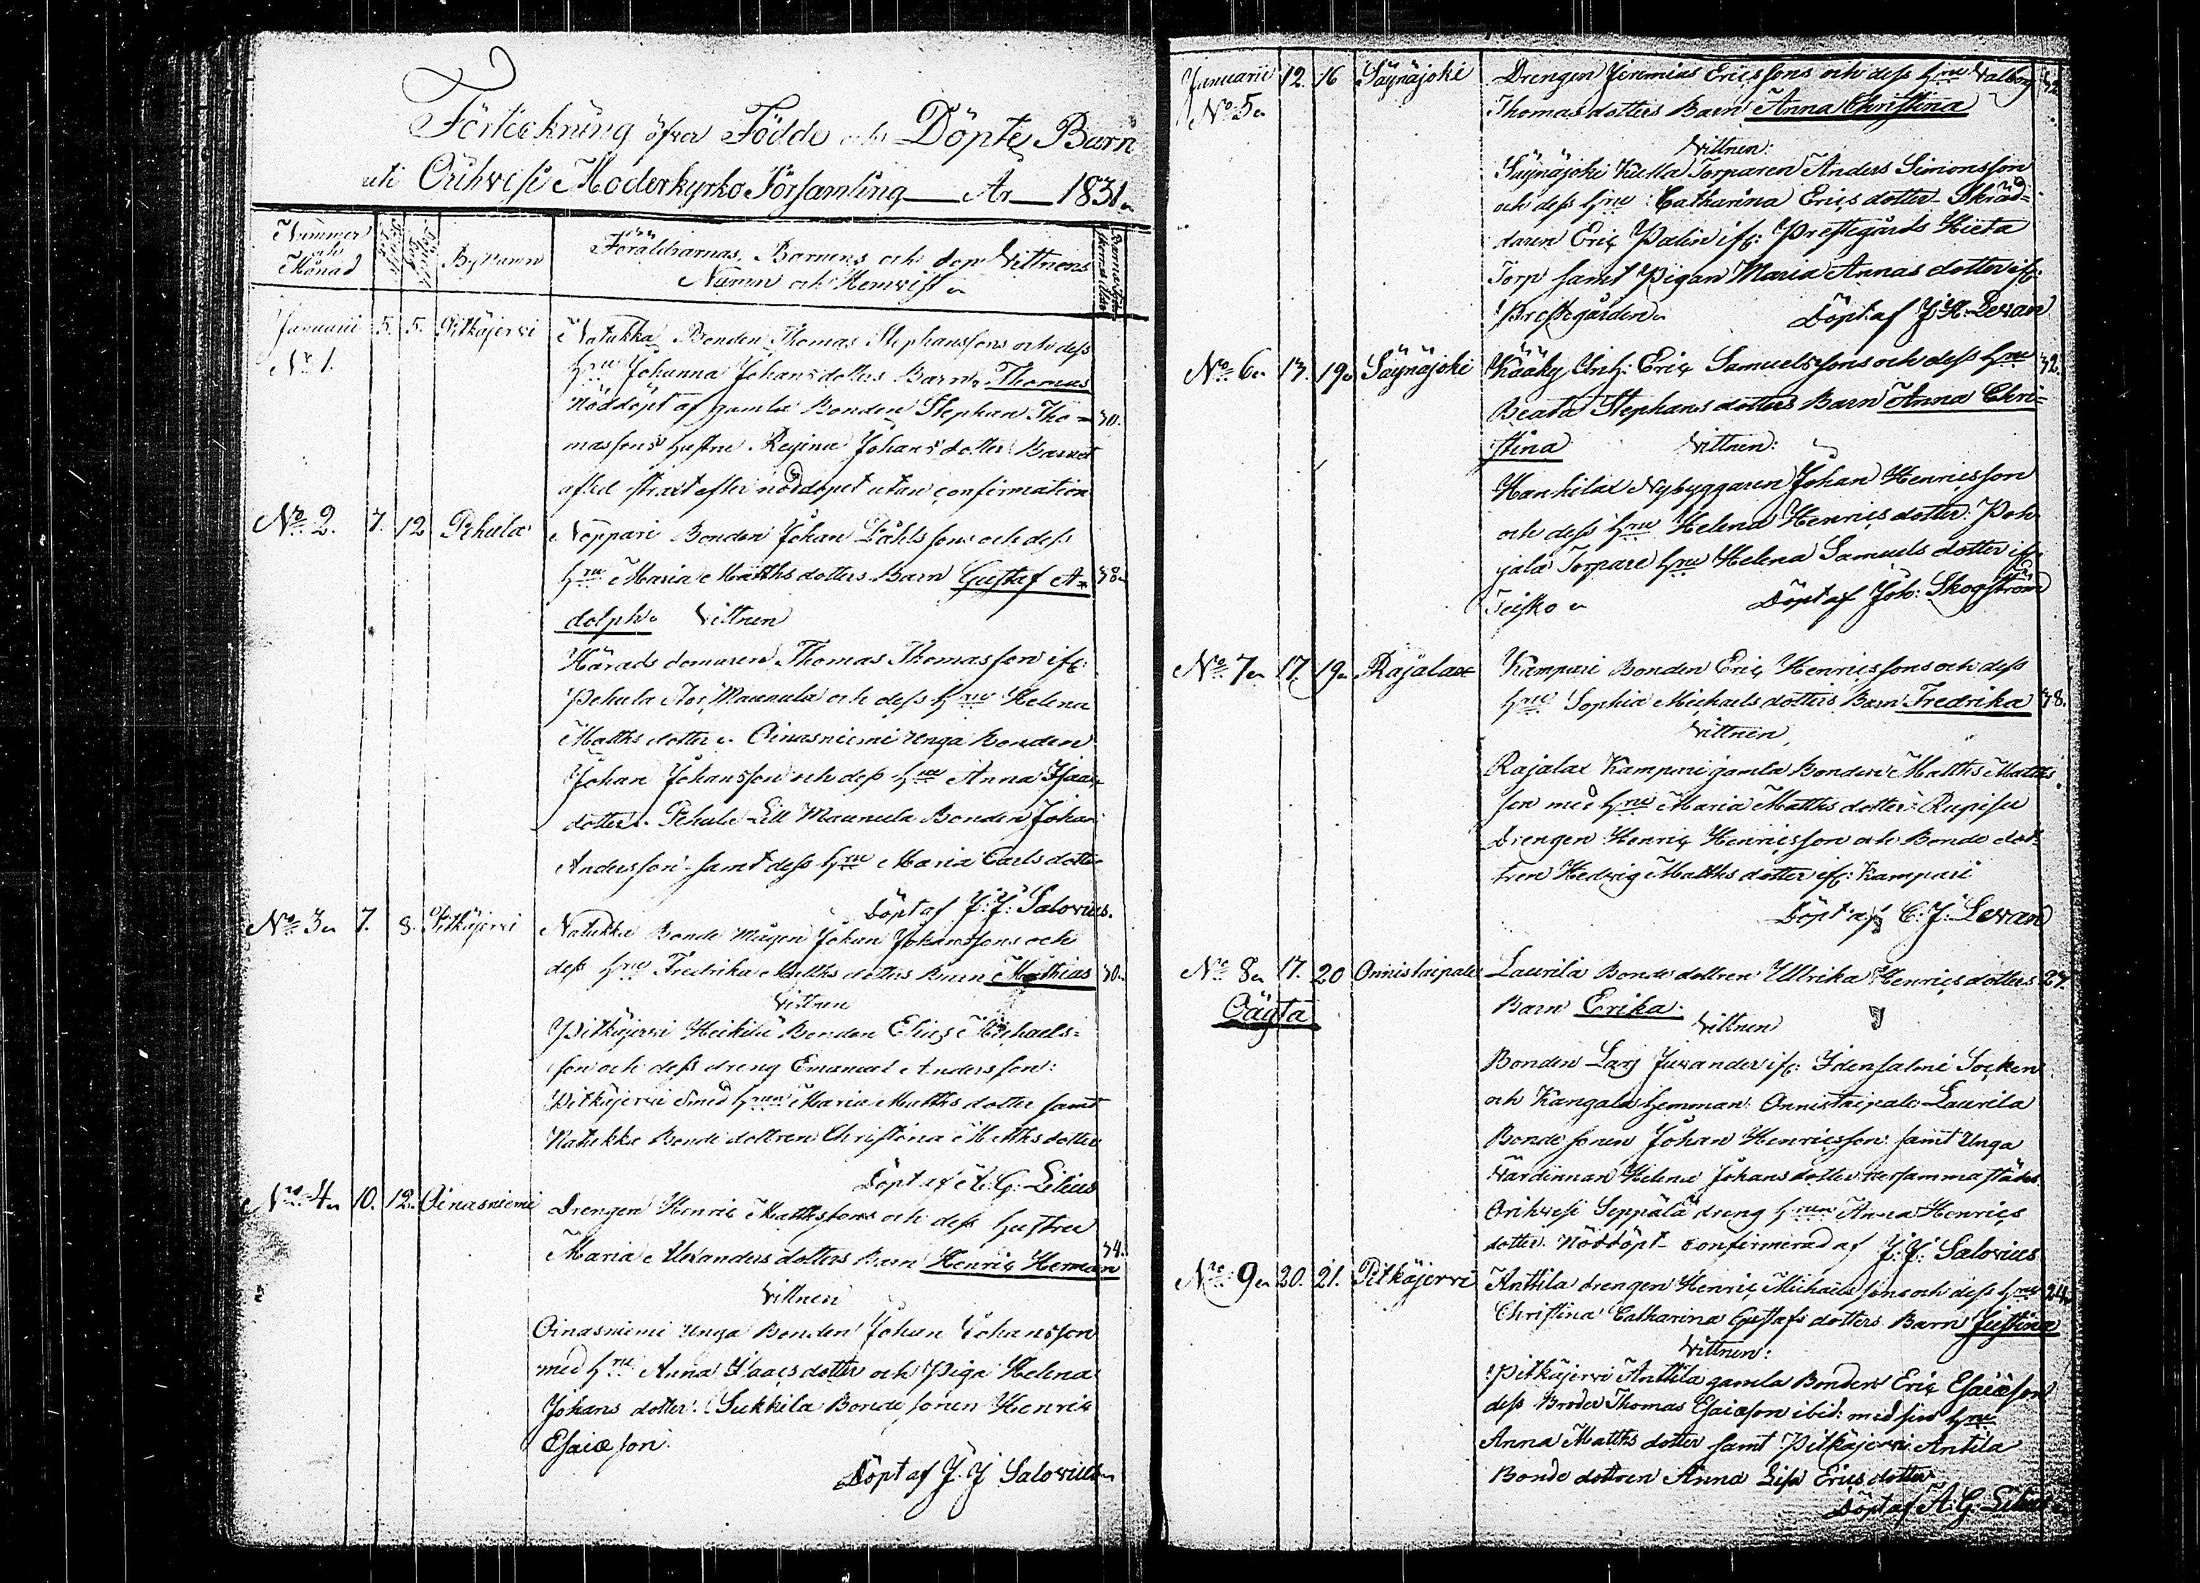 Förteckning öfver Födde och Döpte Barn
uti Orihvesi Moderkyrko Församling År 1831.
Nummer
och
Månad
By Namn
Föräldrarnas, Barnens och dop Vittnens
Namn och Hemvist
Januarii 5. 5. Pitkäjervi Natukka Bonden Thomas Stephanssons och dess
No 1. Hru Johanna Johansdotters Barn Thomas
Nöddöpt af gamla Bonden Stephan Tho- 30.
massons hustru Regina Johansdotter Barnet
afled strax efter nöddopet utan confirmation
No 2. 7. 12 Pehula Noppari Bonden Johan Påhlssons och dess
Hru Maria Matthsdotters Barn Gustaf A- 38.
dolph. Vittnen
Härads domaren Thomas Thomasson ifr:
Pehula Stor Maunula och dess Hru Helena
Matths dotter. Oinasniemi unga Bonden
Johan Johansson och dess Hru Anna Isaacs
dotter. Pehula Lill Maunula Bonden Johan
Andersson samt dess Hru Maria Carlsdotter
Döpt af J:J: Salovius.
No 3. 7. 8. Pitkäjervi Natukka Bonde mågen Johan Johanssons och
dess Hru Fredrika Matths dotters Barn Mathias 30.
Vittnen
Pitkäjervi Heikkilä Bonden Elias Michaels=
son och dess dreng Emanuel Andersson:
Pitkäjervi Smed Hrun Maria Matths dotter samt
Natukka Bonde dottren Christina Matths dotter
Döpt af A: G: Lilius
No 4. 10. 12. Oinasniemi Drengen Henric Mattssons och dess hustru
Maria Alexanders dotters Barn Henric Herman 34.
Vittnen
Oinasniemi unga Bonden Johan Johansson
med Hru Anna Isaacsdotter och Piga Helena
Johans dotter. Sukkila Bonde sonen Henric
Esaiæson.
Döpt af J. J Salovius
Januarii 12. 16 Säynäjoki Drengen Jeremias Ericssons och dess Hru Valborg 32.
No 5. Thomasdotters Barn Anna Christina
Vittnen:
Säynäjoki Kulla Torparen Anders Simonsson
och dess Hru Catharina Erics dotter Skräd=
daren Eric Palin ifr: Prestgårds Hieta
Torp samt Pigan Maria Annas dotter ifr:
Prestgården. Döpt af J H: Levan
No 6. 13. 19. Säynäjoki Kääky Inh: Eric Samuelssons och dess Hru 32.
Beata Stephans dotters Barn Anna Chri=
stina Vittnen:
Hankilax Nybyggaren Johan Henricsson
och dess Hru Helena Henricsdotter: Poh
jala Torpare Hru Helena Samuels dotter ifr:
Teisko. Döpt af Joh: Skogström
No 7. 17. 19. Rajalax Kampari Bonden Eric Henricssons och dess
Hru Sophia Michaels dotters Barn Fredrika 38.
Vittnen
Rajalax Kampari gamla Bonden Matths Matths
son med Hru Maria Matths dotter:
Drengen Henric Henricsson och Bonde dot=
tren Hedvig Matths dotter ifr: Kampari
Döpt af C: J: Levan
No 8. 17. 20 Onnistaipale Laurila Bonde dottren Ullrika Henrics dotters 27.
Oägta Barn Erika.
Vittnen
Bonden Lars Juvander ifr: Idensalmi Socken
och Kangala hemman: Onnistaipale Laurila
Bonde sonen Johan Henricsson samt Unga
Värdinnan Helena Johansdotter dersammastädes
Orihvesi Seppälä dreng Hrun Anna Henrics
dotter. Nöddöpt confirmerad af J: J: Salovius
No 9. 20. 21. Pitkäjervi Anttila drengen Henric Michaelssons och dess Hru 24.
Christina Catharina Gustafs dotters Barn Justina
Vittnen:
Pitkäjervi Anttila gamla Bonden Eric Esaiæson
dess Broder Thomas Esaiæson ibid: med sin Hru
Anna Matths dotter samt Pitkäjervi Antila
Bonde dottren Anna Lisa Erics dotter
Döpt af A: G: Lilius